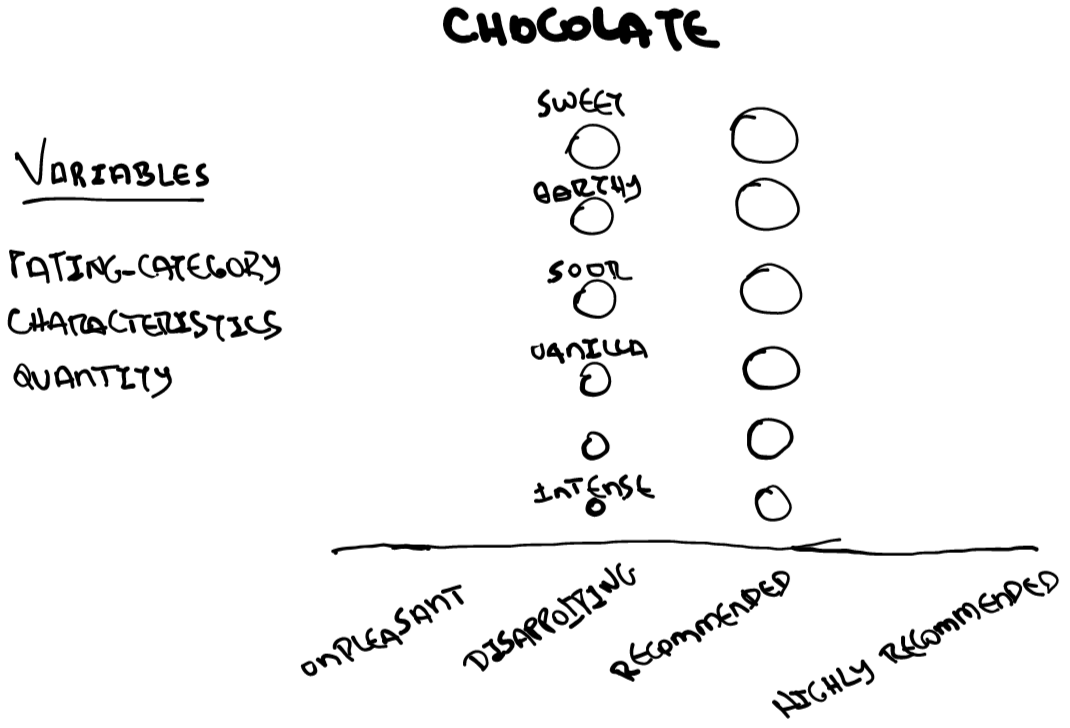 CHOCOLATE
VARIABLES
RATING-CATEGORY
CHARACTERISTICS
QUANTITY
SWEET
EARTHY
SOUR
VANILLA
INTENSE
UNPLEASANT
DISAPPOITING
RECOMMENDED
HIGHLY RECOMMENDED